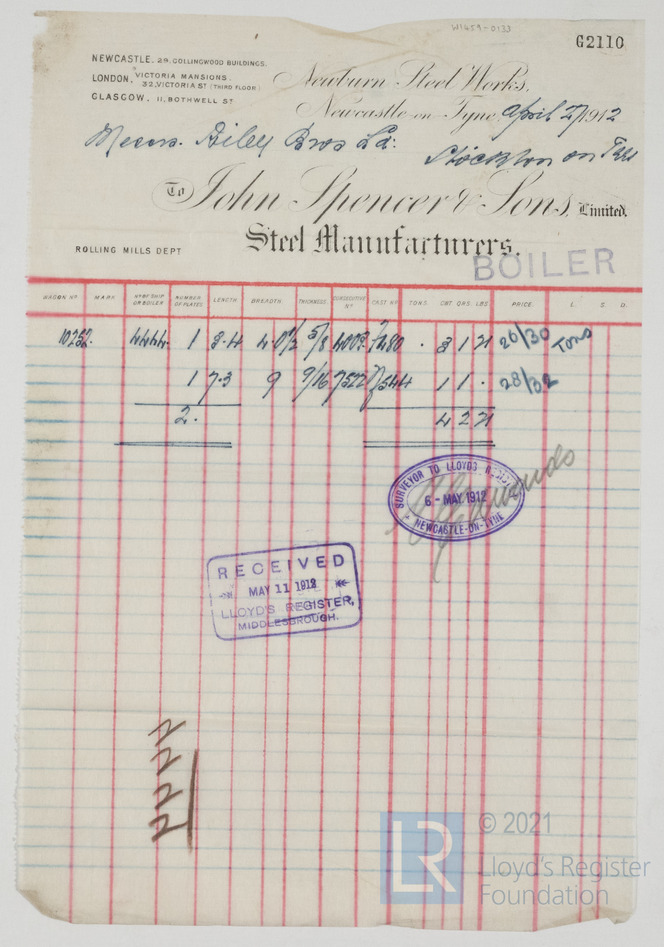 W1459-0133
G2110
NEWCASTLE. 29, COLLINGWOOD BUILDINGS.
LONDON. VICTORIA MANSIONS.
32, VICTORIA ST (THIRD FLOOR)
GLASGOW. 11, BOTHWELL ST
Newburn Steel Works,
Newcastle-on-Tyne, April 1912
Messrs. Riley Bros Ld:
Stockton on Tees
To John Spencer & Sons, Limited.
Steel Manufacturers.
ROLLING MILLS DEPT
BOILER
WAGON No MARK No OF SHIP OR BOILER NUMBER OF PLATES LENGTH BREADTH THICKNESS CONSECUTIVE No CAST No TONS CWT QRS. LBS PRICE. £ S. D.
10252. 4444. 1 8.4 4 0½ 5/8 . 3 1 21 26/30 Tons
1 7.3 9 9/16 7522 1 1 . 28/32
2. 4 2 21
SURVEYOR TO LLOYD'S REGISTER
6 - MAY 1912
NEWCASTLE-ON-TYNE
RECEIVED
MAY 11 1912
LLOYD'S REGISTER,
MIDDLESBROUGH.
2222
LR
© 2021
Lloyd's Register
Foundation